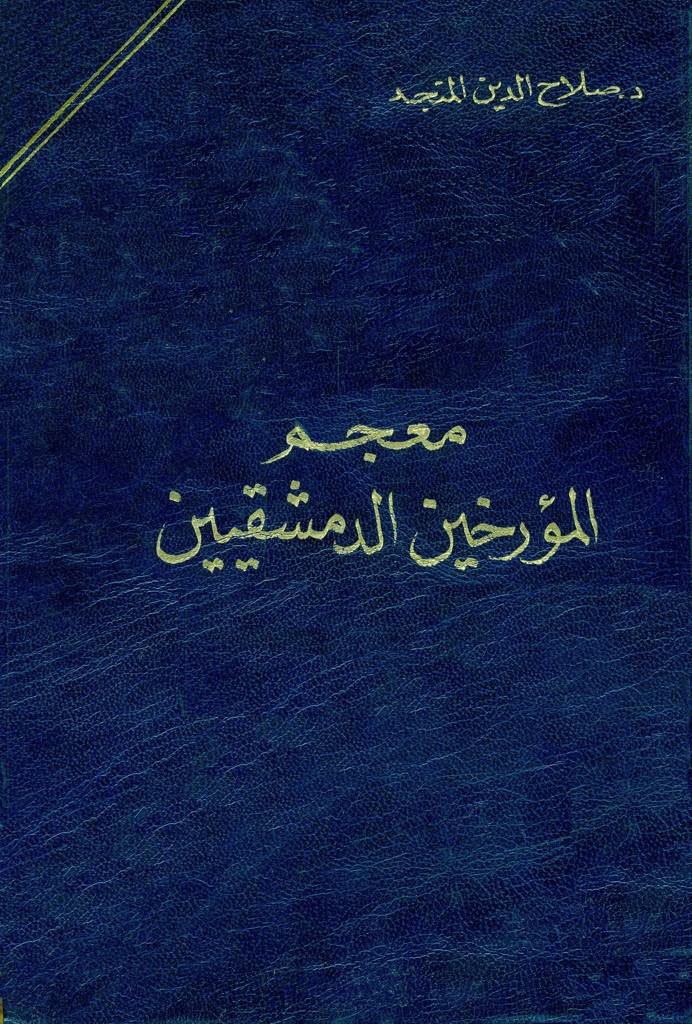 د. صلاح الدين المنجد
معجم
المؤرخين الدمشقيين